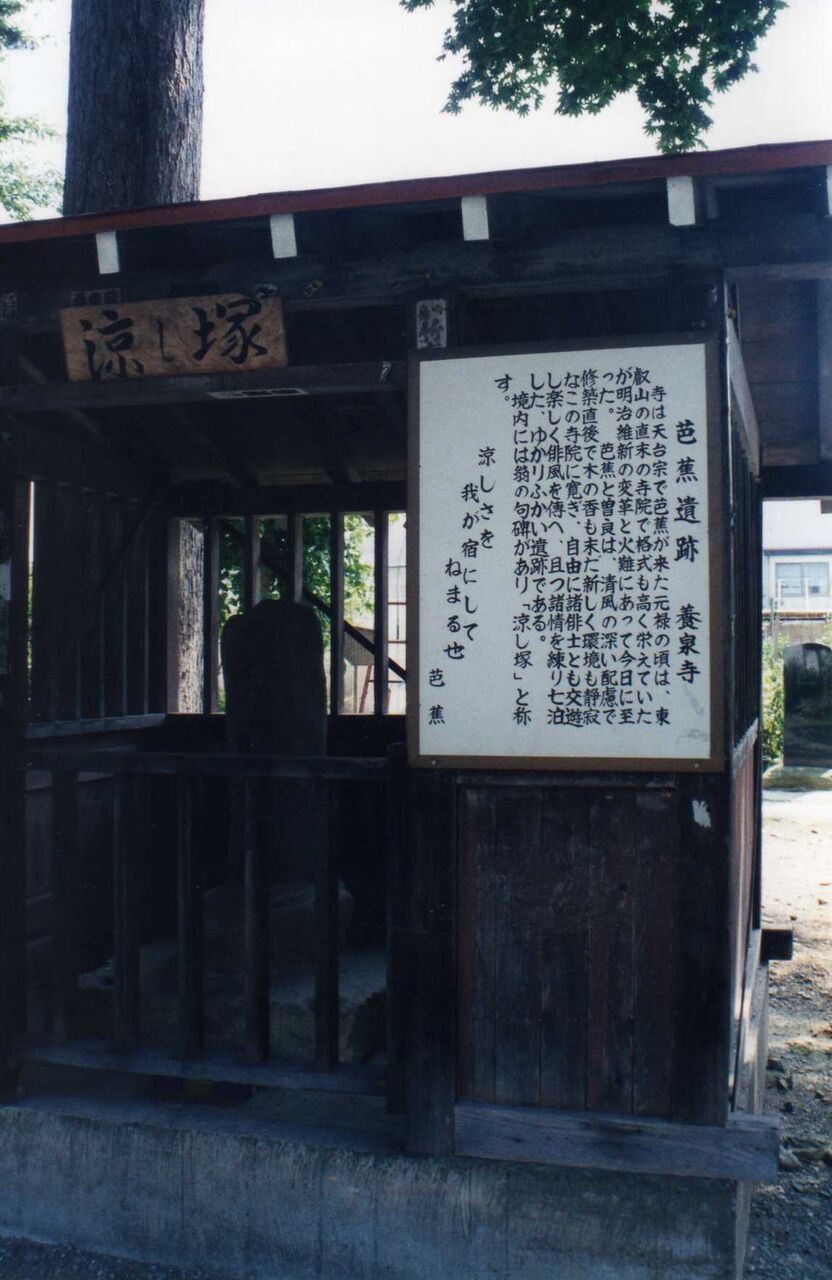 涼し塚
芭蕉遺跡　養泉寺
寺は天台宗で芭蕉が来た元禄の頃は、東
叡山の直末の寺院で格式も高く栄えていた
が明治維新の変革と火難にあって今日に至
った。　芭蕉と曽良は、清風の深い配慮で
修築直後で木の香も末だ新しく環境も静寂
なこの寺院に寛ぎ、自由に諸俳士とも交遊
し楽しく俳風を傳へ、且つ諸情を練り七泊
した、ゆかりふかい遺跡である。
境内には翁の句碑があり「涼し塚」と称
す。
涼しさを
我が宿にして
ねまる也
芭蕉